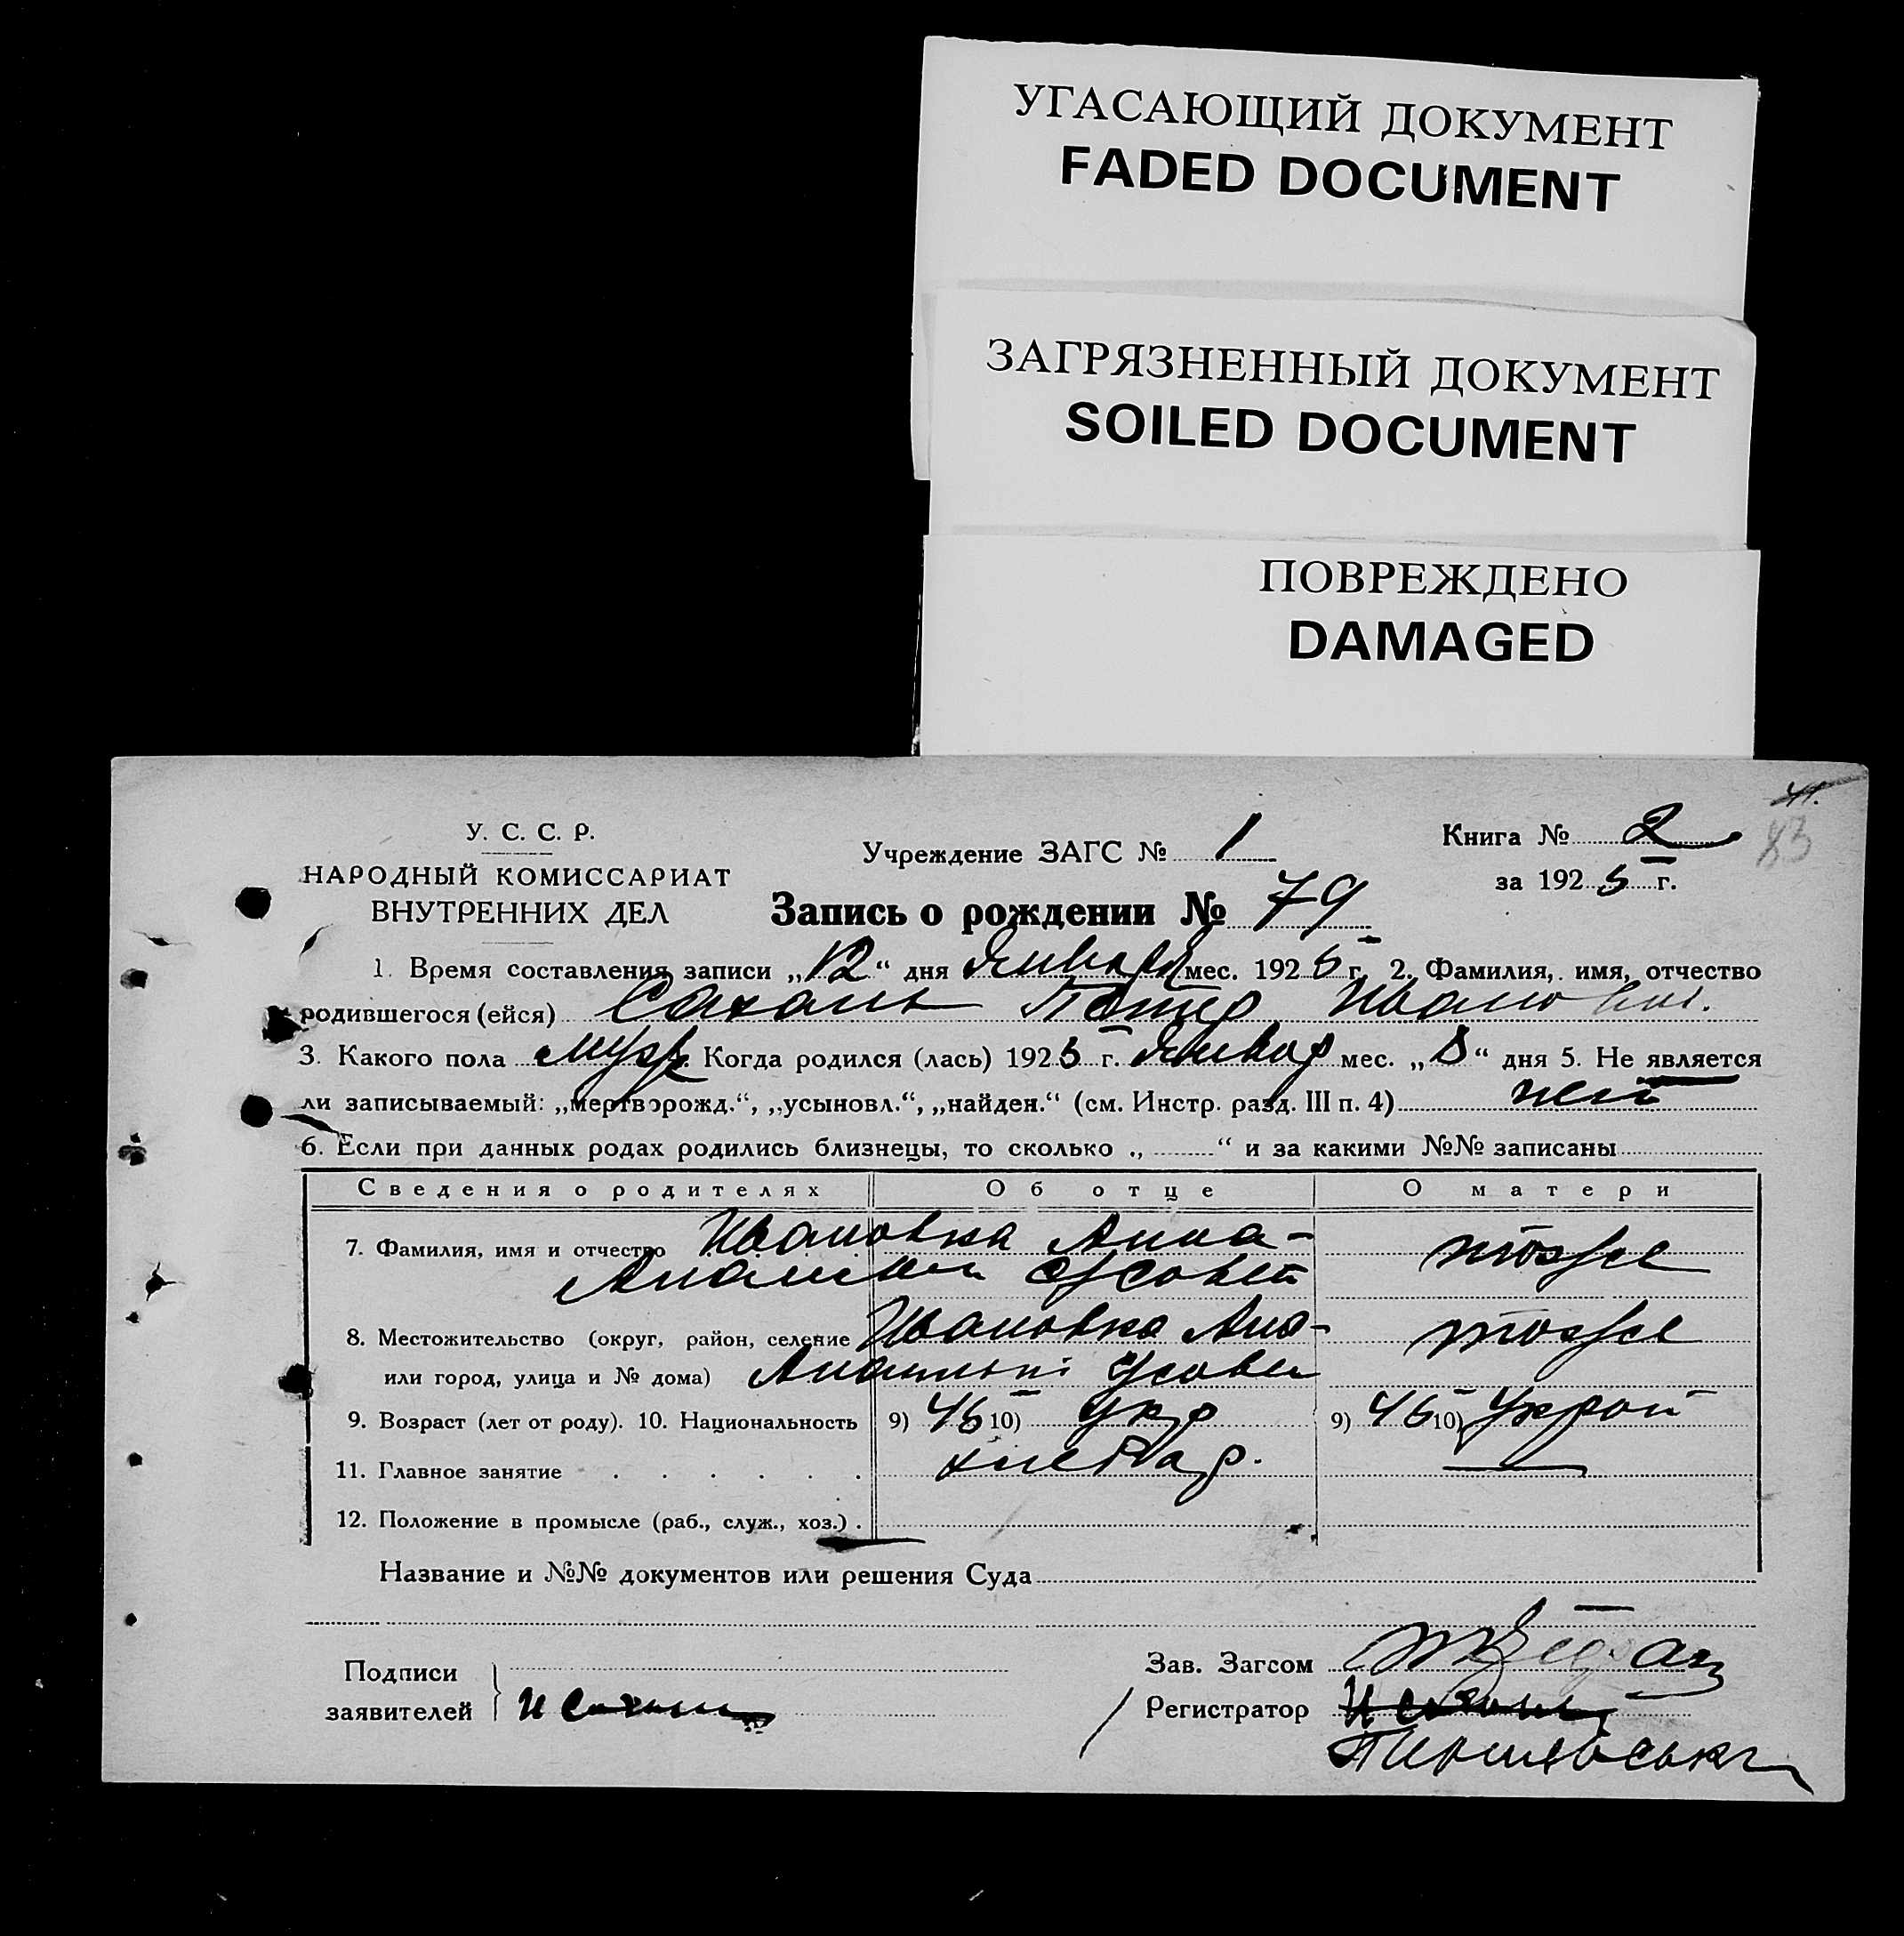 УГАСАЮЩИЙ ДОКУМЕНТ
FADED DOCUMENT
ЗАГРЯЗНЕННЫЙ ДОКУМЕНТ
SOILED DOCUMENT
ПОВРЕЖДЕНО
DAMAGED
41.
83
У. С. С. Р.
НАРОДНЫЙ КОМИССАРИАТ
ВНУТРЕННИХ ДЕЛ
Учреждение ЗАГС № 1
Книга № 2
за 1925 г.
Запись о рождении № 79
1. Время составления записи „12“ дня Января мес. 1925 г. 2. Фамилия, имя, отчество
родившегося (ейся) Сахань Петир Иванович.
3. Какого пола муж. Когда родился (лась) 1925 г. Январ мес. „8“ дня 5. Не является
ли записываемый: „мертворожд.“, „усыновл.“, „найден.“ (см. Инстр. разд. III п. 4) нет
6. Если при данных родах родились близнецы, то сколько „ “ и за какими №№ записаны
Сведения о родителях Об отце О матери
7. Фамилия, имя и отчество Ивановка тоже
8. Местожительство (округ, район, селение Ивановка тоже
или город, улица и № дома)
9. Возраст (лет от роду). 10. Национальность 9) 46 10) укр 9) 46 10)
11. Главное занятие хлебар. —
12. Положение в промысле (раб., служ., хоз.) .
Название и №№ документов или решения Суда
Подписи
заявителей И Сахань
Зав. Загсом
Регистратор И Сахань